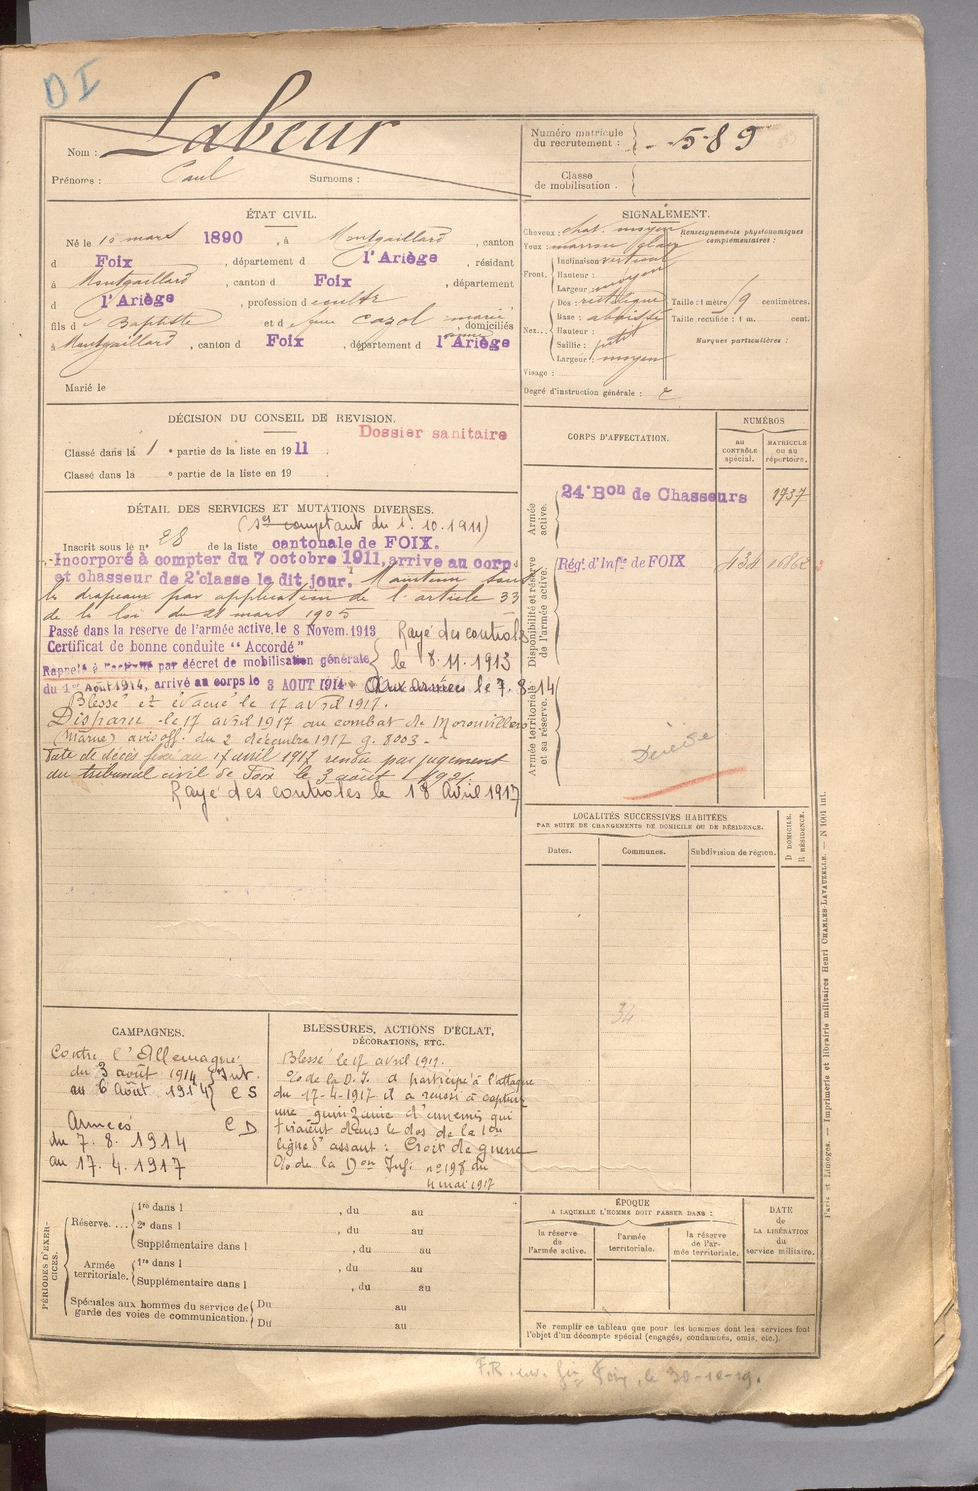 D I
Nom : Labeur
Prénoms : Paul Surnoms :
Numéro matricule du recrutement : 589
Classe de mobilisation .
ÉTAT CIVIL.
Né le 10 mars 1890 , à Montgaillard , canton
d Foix , département d l'Ariège , résidant
à Montgaillard , canton d Foix , département
d l'Ariège , profession d
fils d e Baptiste et d e Cazol , domiciliés
à Montgaillard , canton d Foix , département d l'Ariège
Marié le
SIGNALEMENT.
Cheveux : chat. moyen
Yeux : marron
Renseignements physionomiques complémentaires :
Front. Inclinaison vertical
Hauteur : moyen
Largeur : moyen
Nez... Dos : rectiligne
Base : abaissé
Hauteur :
Saillie : petit
Largeur : moyen
Visage :
Taille : 1 mètre centimètres.
Taille rectifiée : 1 m. cent.
Marques particulières :
Degré d'instruction générale :
DÉCISION DU CONSEIL DE REVISION.
Dossier sanitaire
Classé dans la 1 e partie de la liste en 1911 .
Classé dans la e partie de la liste en 19 .
DÉTAIL DES SERVICES ET MUTATIONS DIVERSES.
(Ser comptant du 1. 10. 1911)
Inscrit sous le n° 28 de la liste cantonale de FOIX.
Incorporé à compter du 7 octobre 1911, arrive au corps
et chasseur de 2e classe le dit jour. Maintenu sous
les drapeaux par application de l'article 33
de la loi du 21 mars 1905
Passé dans la reserve de l'armée active, le 8 Novem. 1913
Certificat de bonne conduite "Accordé"
Rayé des controles
le 8.11.1913
Rappelé à l'activité par décret de mobilisation générale
du 1er Août 1914, arrivé au corps le 3 AOUT 1914 Aux armées le 7.8.14
Blessé et évacué le 17 avril 1917.
Disparu le 17 avril 1917 au combat de Moronvillers
(Marne) avis off. du 2 décembre 1917 g. 8003 -
Date de décès fixé au 17 avril 1917 rendu par jugement
du tribunal civil de Foix le 3 août 1921.
Rayé des controles le 18 Avril 1917
CORPS D'AFFECTATION.
NUMÉROS
au CONTRÔLE spécial.
MATRICULE OU AU répertoire.
Armée active.
24e Bon de Chasseurs 1737
Disponibilité et réserve de l'armée active.
Régt d'Infie de FOIX 434
Armée territoriale et sa réserve.
LOCALITÉS SUCCESSIVES HABITÉES
PAR SUITE DE CHANGEMENTS DE DOMICILE OU DE RÉSIDENCE.
Dates. Communes. Subdivision de région.
D DOMICILE. R RÉSIDENCE.
34
CAMPAGNES.
Contre l'Allemagne
du 3 août 1914 Int.
au 6 Août 1914 C S
Armées C D
du 7.8.1914
au 17.4.1917
BLESSURES, ACTIONS D'ÉCLAT, DÉCORATIONS, ETC.
Blessé le 17 avril 1917.
O/o de la D.I. a participé à l'attaque
du 17-4-1917 il a réussi à capturer
une quinzaine d'ennemis qui
tiraient dans le dos de la 1ère
ligne d'assaut : Croix de guerre
O/o de la Don Infie n° 198 du
4 mai 1917
PÉRIODES D'EXERCICES.
Réserve.... 1re dans l , du au
2e dans l , du au
Supplémentaire dans l , du au
Armée territoriale. 1re dans l , du au
Supplémentaire dans l , du au
Spéciales aux hommes du service de garde des voies de communication. Du au
Du au
ÉPOQUE
A LAQUELLE L'HOMME DOIT PASSER DANS :
la réserve de l'armée active.
l'armée territoriale.
la réserve de l'armée territoriale.
DATE de LA LIBÉRATION du service militaire.
Ne remplir ce tableau que pour les hommes dont les services font
l'objet d'un décompte spécial (engagés, condamnés, omis, etc.).
Paris et Limoges. — Imprimerie et librairie militaires Henri CHARLES-LAVAUZELLE. — N 1001 int.
Foix, le 30-12-19.